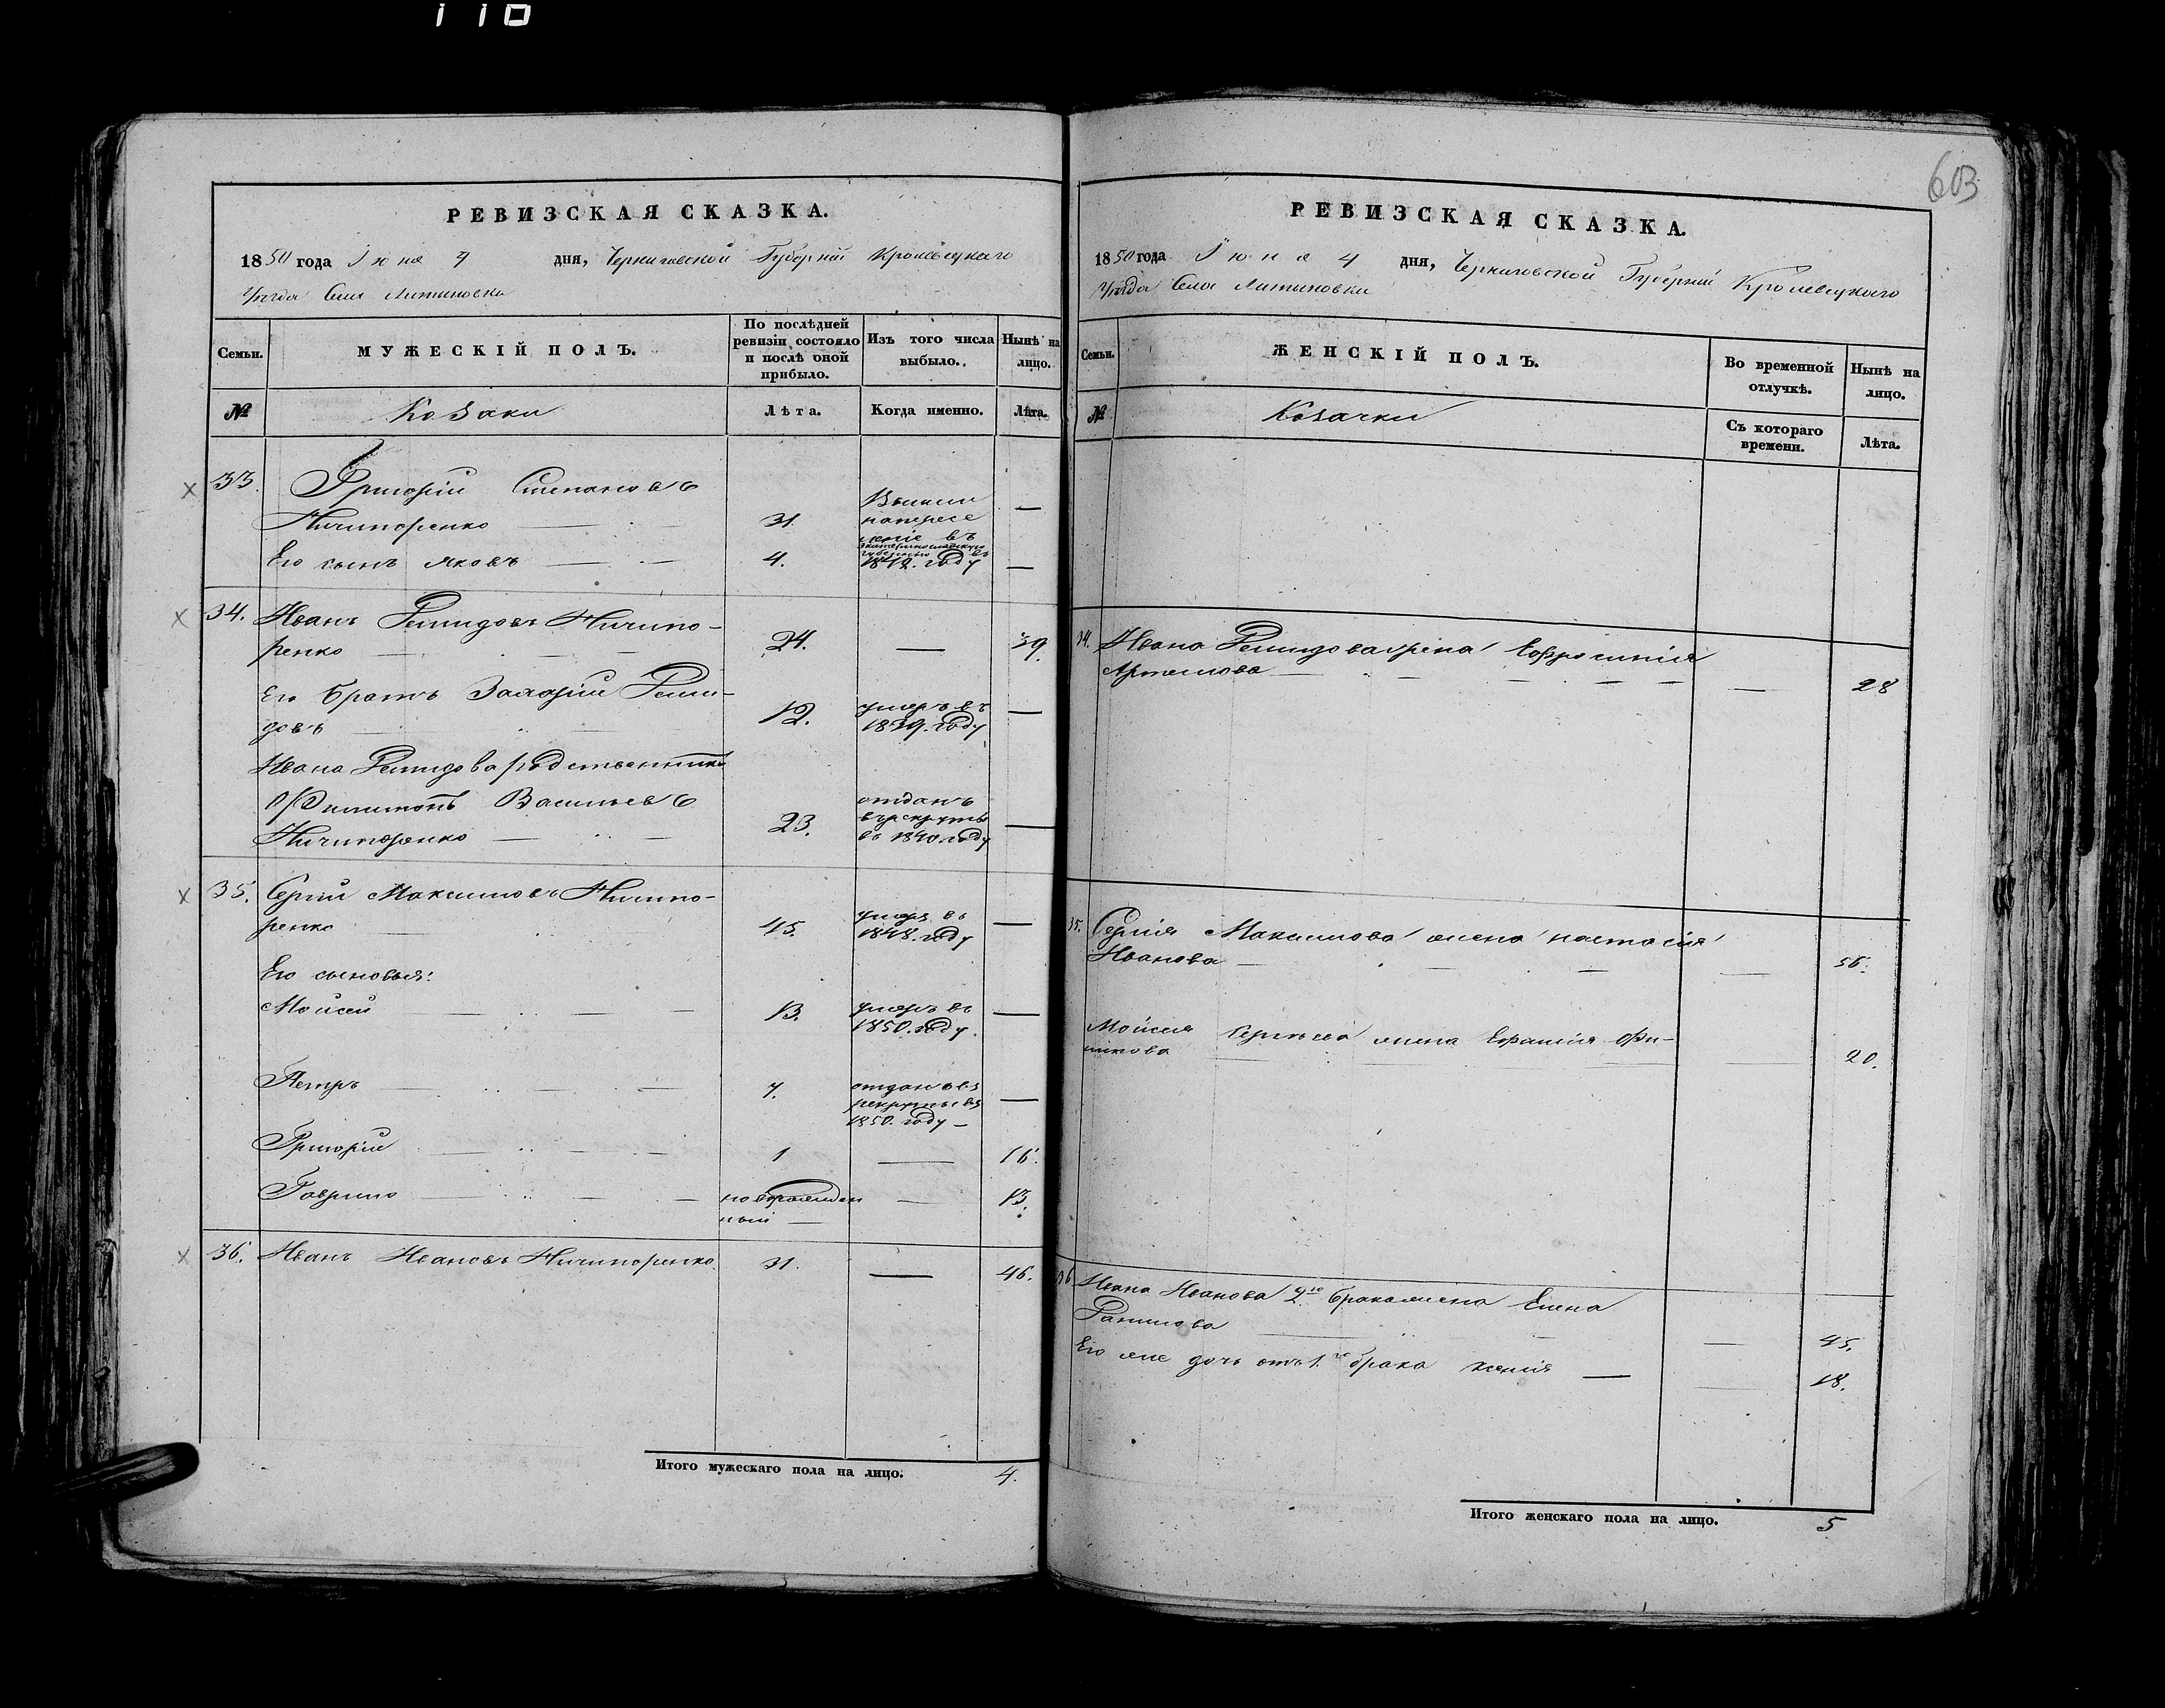 110
603
РЕВИЗСКАЯ СКАЗКА.
1850 года Іюня 4 дня, Черниговской Губерніи Кролевецкаго
Уѣзда Села Литиновки
Семьи.
МУЖЕСКІЙ ПОЛЪ.
По послѣдней ревизіи состояло и послѣ оной прибыло.
Изъ того числа выбыло.
Нынѣ на лицо.
№
Козаки
Лѣта.
Когда именно.
Лѣта.
33. Григорій Степановъ
Ничипоренко — 31.
Его сынъ Яковъ — 4.
Вышли
на пересе
леніе въ
Екатеринославскую
губернію въ
1842. году
—
—
34. Иванъ Демидовъ Ничипо-
ренко — 24. — 39.
Его братъ Захарій Деми-
довъ — 12.
умеръ въ
1839. году —
Ивана Демидова родственникъ
Филимонъ Васильевъ
Ничипоренко — 23.
отданъ
въ рекруты
въ 1840. году —
35. Сергій Максимовъ Ничипо-
ренко — 45.
умеръ въ
1848. году —
Его сыновья:
Мойсей — 13.
умеръ въ
1850. году. —
Петръ — 7.
отданъ въ
рекруты въ
1850. году —
Григорій — 1 — 16.
Гаврило — новорожден
ный — 13.
36. Иванъ Ивановъ Ничипоренко. 31. — 46.
Итого мужескаго пола на лицо. 4.
РЕВИЗСКАЯ СКАЗКА.
1850 года Іюня 4 дня, Черниговской Губерніи Кролевецкаго
Уѣзда Села Литиновки
Семьи.
ЖЕНСКІЙ ПОЛЪ.
Во временной отлучкѣ.
Нынѣ на лицо.
№
Козачки
Съ котораго времени.
Лѣта.
34. Ивана Демидова жена Евфросинія
Артемова — 28
35. Сергія Максимова жена Настасія
Иванова — 56.
Мойсея Сергѣева жена
— 20.
36 Ивана Иванова 2го брака жена Елена
Данилова — 45.
Его же дочь отъ 1.го брака Ксенія — 18.
Итого женскаго пола на лицо. 5